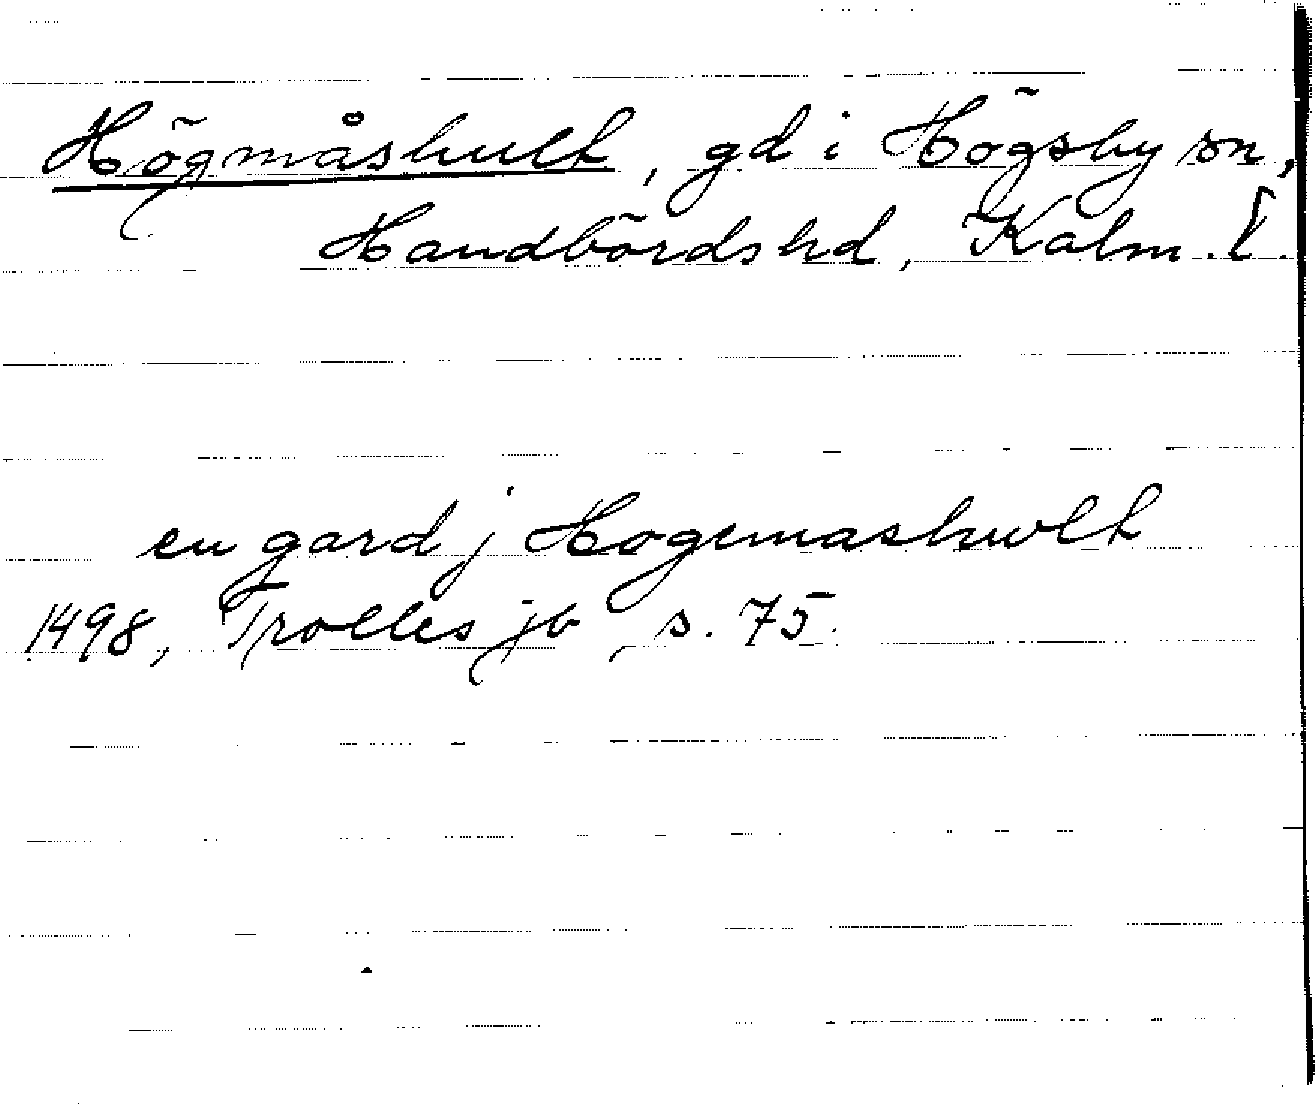 Högmåshult, gd i Högsby sn,
Handbörds hd, Kalm. l.
en gard j Hogemashwlt
1498, Trolles jb s. 75.